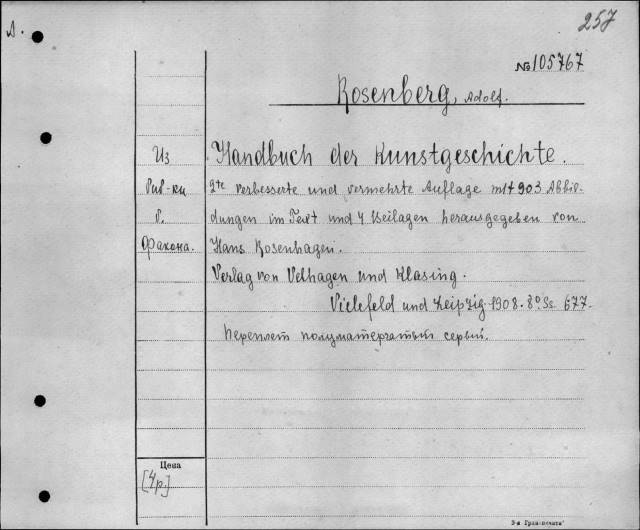 257
А.
№105767
Rosenberg, Adolf.
Из
Handbuch der Kunstgeschichte.
2te verbesserte und vermehrte Auflage mit 903 Abbil-
dungen im Text und 4 Beilagen herausgegeben von
Hans Rosenhagen.
Verlag von Velhagen und Klasing.
Bielefeld und Leipzig 1908. 8° Ss 677.
Переплет полуматерчатый серый.
Цена
[4р.]